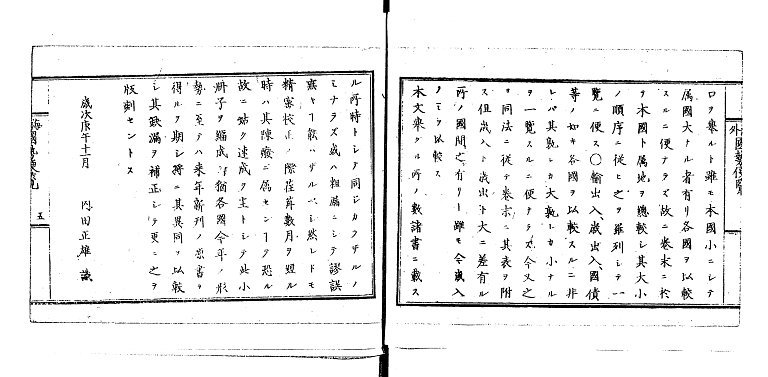 口ヲ擧ルト雖モ本國小ニシテ
屬國大ナル者有リ各國ヲ以較
スルニ便ナラズ故ニ卷末ニ於
テ本國ト屬地ヲ總較シ其大小
ノ順序ニ從ヒ之ヲ羅列シテ一
覧ニ便ス〇輸出入歳出入國債
等ノ如キ各國ヲ以較スルニ非
レバ其孰レカ大孰レカ小ナル
ヲ一覧スルニ便ナラズ今又之
ヲ同法ニ從テ卷末ニ其表ヲ附
ス但歳入ト歳出ト大ニ差有ル
所ノ國間之有リト雖モ今歳入
ノミヲ以較ス
本文擧クル所ノ數諸書ニ載ス
ル所時トシテ同ジカラザルノ
ミナラズ或ハ粗漏ニシテ謬誤
無キ能ハザルベシ然レドモ
精密校正ノ際荏苒數月ヲ曠ル
時ハ其陳癈ニ屬センヿヲ恐ル
故ニ姑ク速成ヲ主トシテ此小
冊子ヲ編成ス猶各國今年ノ形
勢ニ至テハ来年新刊ノ原書ヲ
得ルヲ期シ将ニ其異同ヲ以較
シ其缺漏ヲ補正シテ更ニ之ヲ
版刻セントス
歳次庚午十一月　内田正雄　識
五